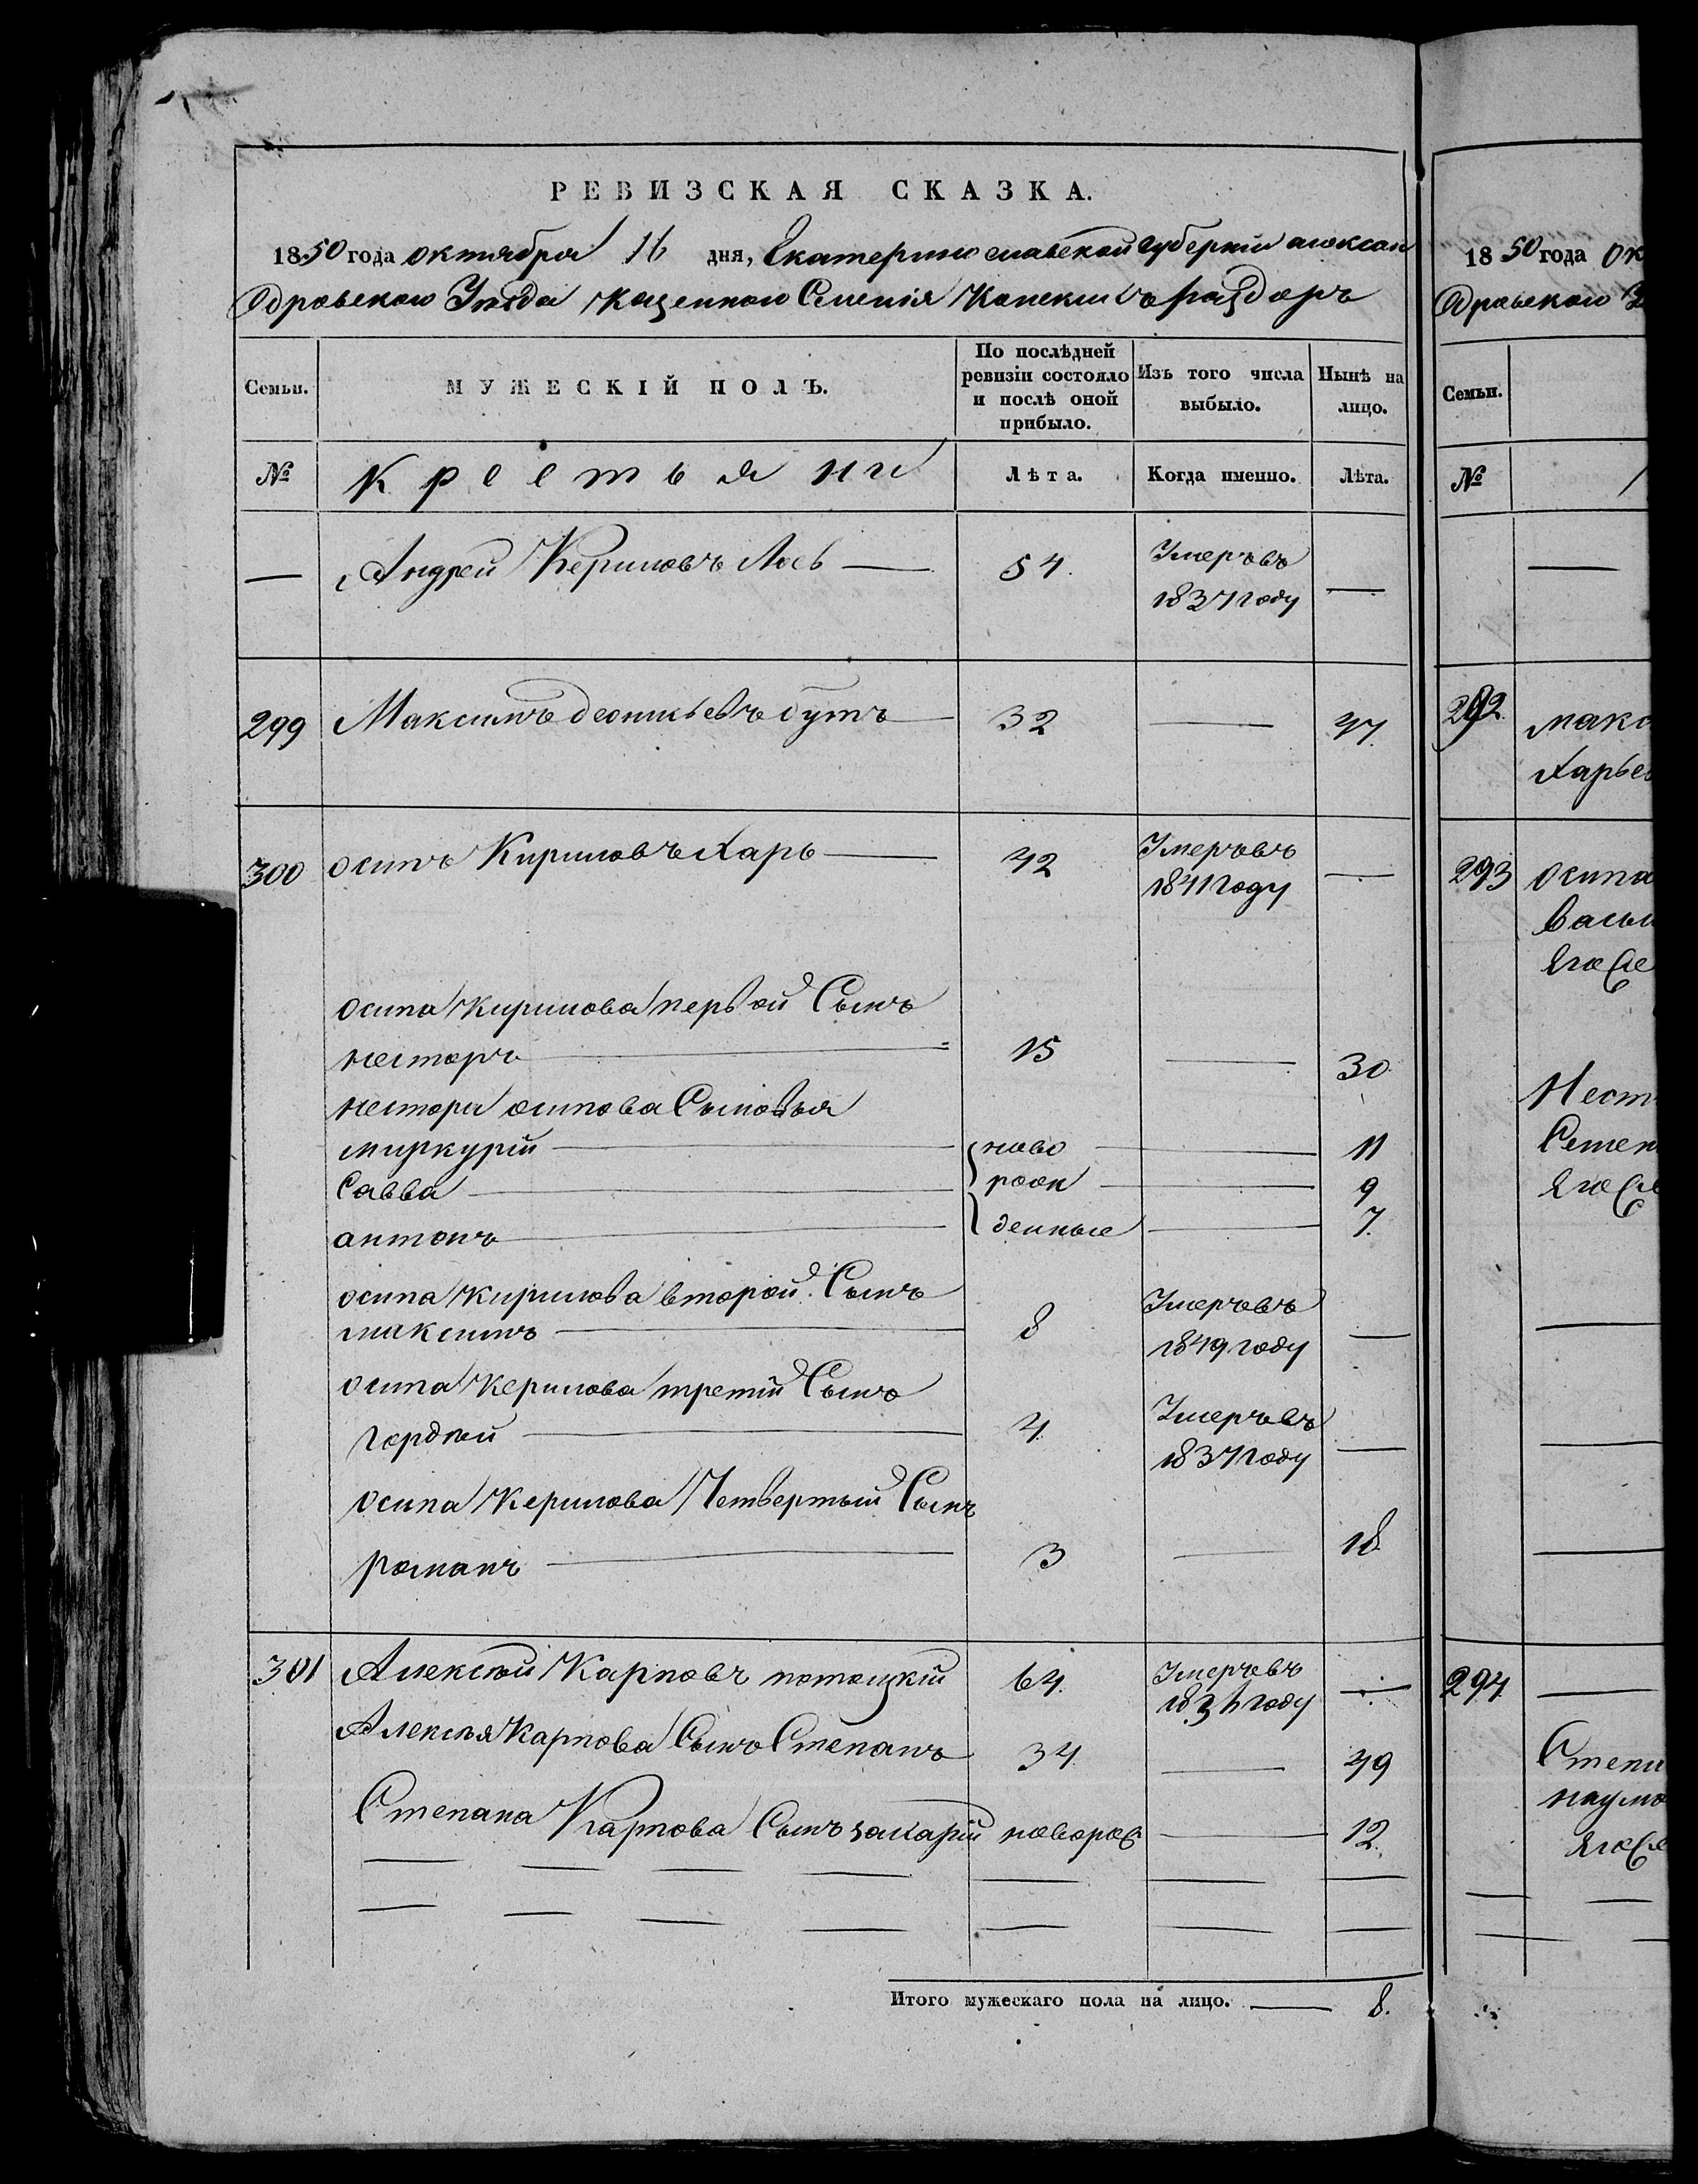 РЕВИЗСКАЯ СКАЗКА.
1850 года октября 16 дня, Екатеринославской губернiи алексан
дровскаго Уѣзда казеннаго Селенiя Конскихъ раздоръ
Семьи. МУЖЕСКIЙ ПОЛЪ. По послѣдней ревизiи состояло и послѣ оной прибыло. Изъ того числа выбыло. Нынѣ на лицо.
№ Крестьяни Лѣта. Когда именно. Лѣта.
— Андрей Кериловъ — 54. Умеръ въ 1837 году —
299 Максимъ Леонтьевъ бутъ — 32 — 47.
300 осипъ Кириловъ Харь — 42 Умеръ въ 1841 году —
осипа Кирилова первой Сынъ
несторъ — 15 — 30
нестора осипова Сыновья
миркурiй — ново — 11
Савва — рож — 9
антонъ — денные — 7.
осипа кирилова второй Сынъ
максимъ — 8 Умеръ въ 1849 году —
осипа Керилова третiй Сынъ
гордѣй — 4 Умеръ въ 1837 году —
осипа Керилова Четвертый Сынъ
романъ — 3 — 18.
301 Алексѣй Карповъ потоцкiй 64. Умеръ въ 1836 году —
Алексѣя Карпова Сынъ Степанъ 34. — 49
Степана Карпова Сынъ захарiй новорож — 12.
Итого мужескаго пола на лицо. — 8.
1850 года Ок
дровскаго У
Семьи.
№
292. макс
Харьев
293 осипа
Васил
Его
Нест
Семен
Его
294.
Степа
наумо
Его